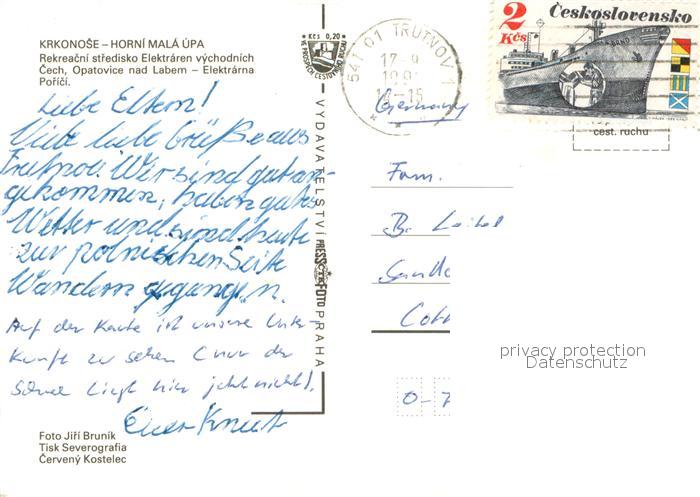 KRKONOŠE – HORNÍ MALÁ ÚPA
Rekreační středisko Elektráren východních
Čech, Opatovice nad Labem – Elektrárna
Poříčí.
Liebe Eltern!
Viele liebe Grüße aus
Trutnov. Wir sind gut an-
gekommen, haben gutes
Wetter und sind heute
zur polnischen Seite
Wandern gegangen.
Auf der Karte ist unsere Unter-
kunft zu sehen (nur der
Schnee liegt hier jetzt nicht).
Euer Knut
Foto Jiří Bruník
Tisk Severografia
Červený Kostelec
Kčs 0,20
VYDAVATELSTVÍ PRESSFOTO PRAHA
541 01 TRUTNOV 1
17-9
Československo
2
Kčs
BRNO
cest. ruchu
Germany
Fam.
O-7
privacy protection
Datenschutz